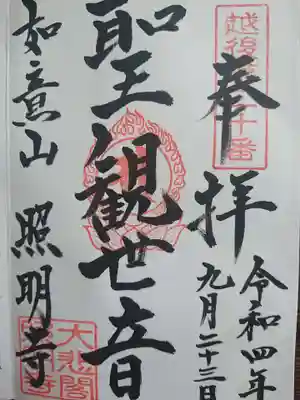 越後
十番
奉拝
令和四年
九月二十三日
聖観世音
如意山 照明寺
大悲閣